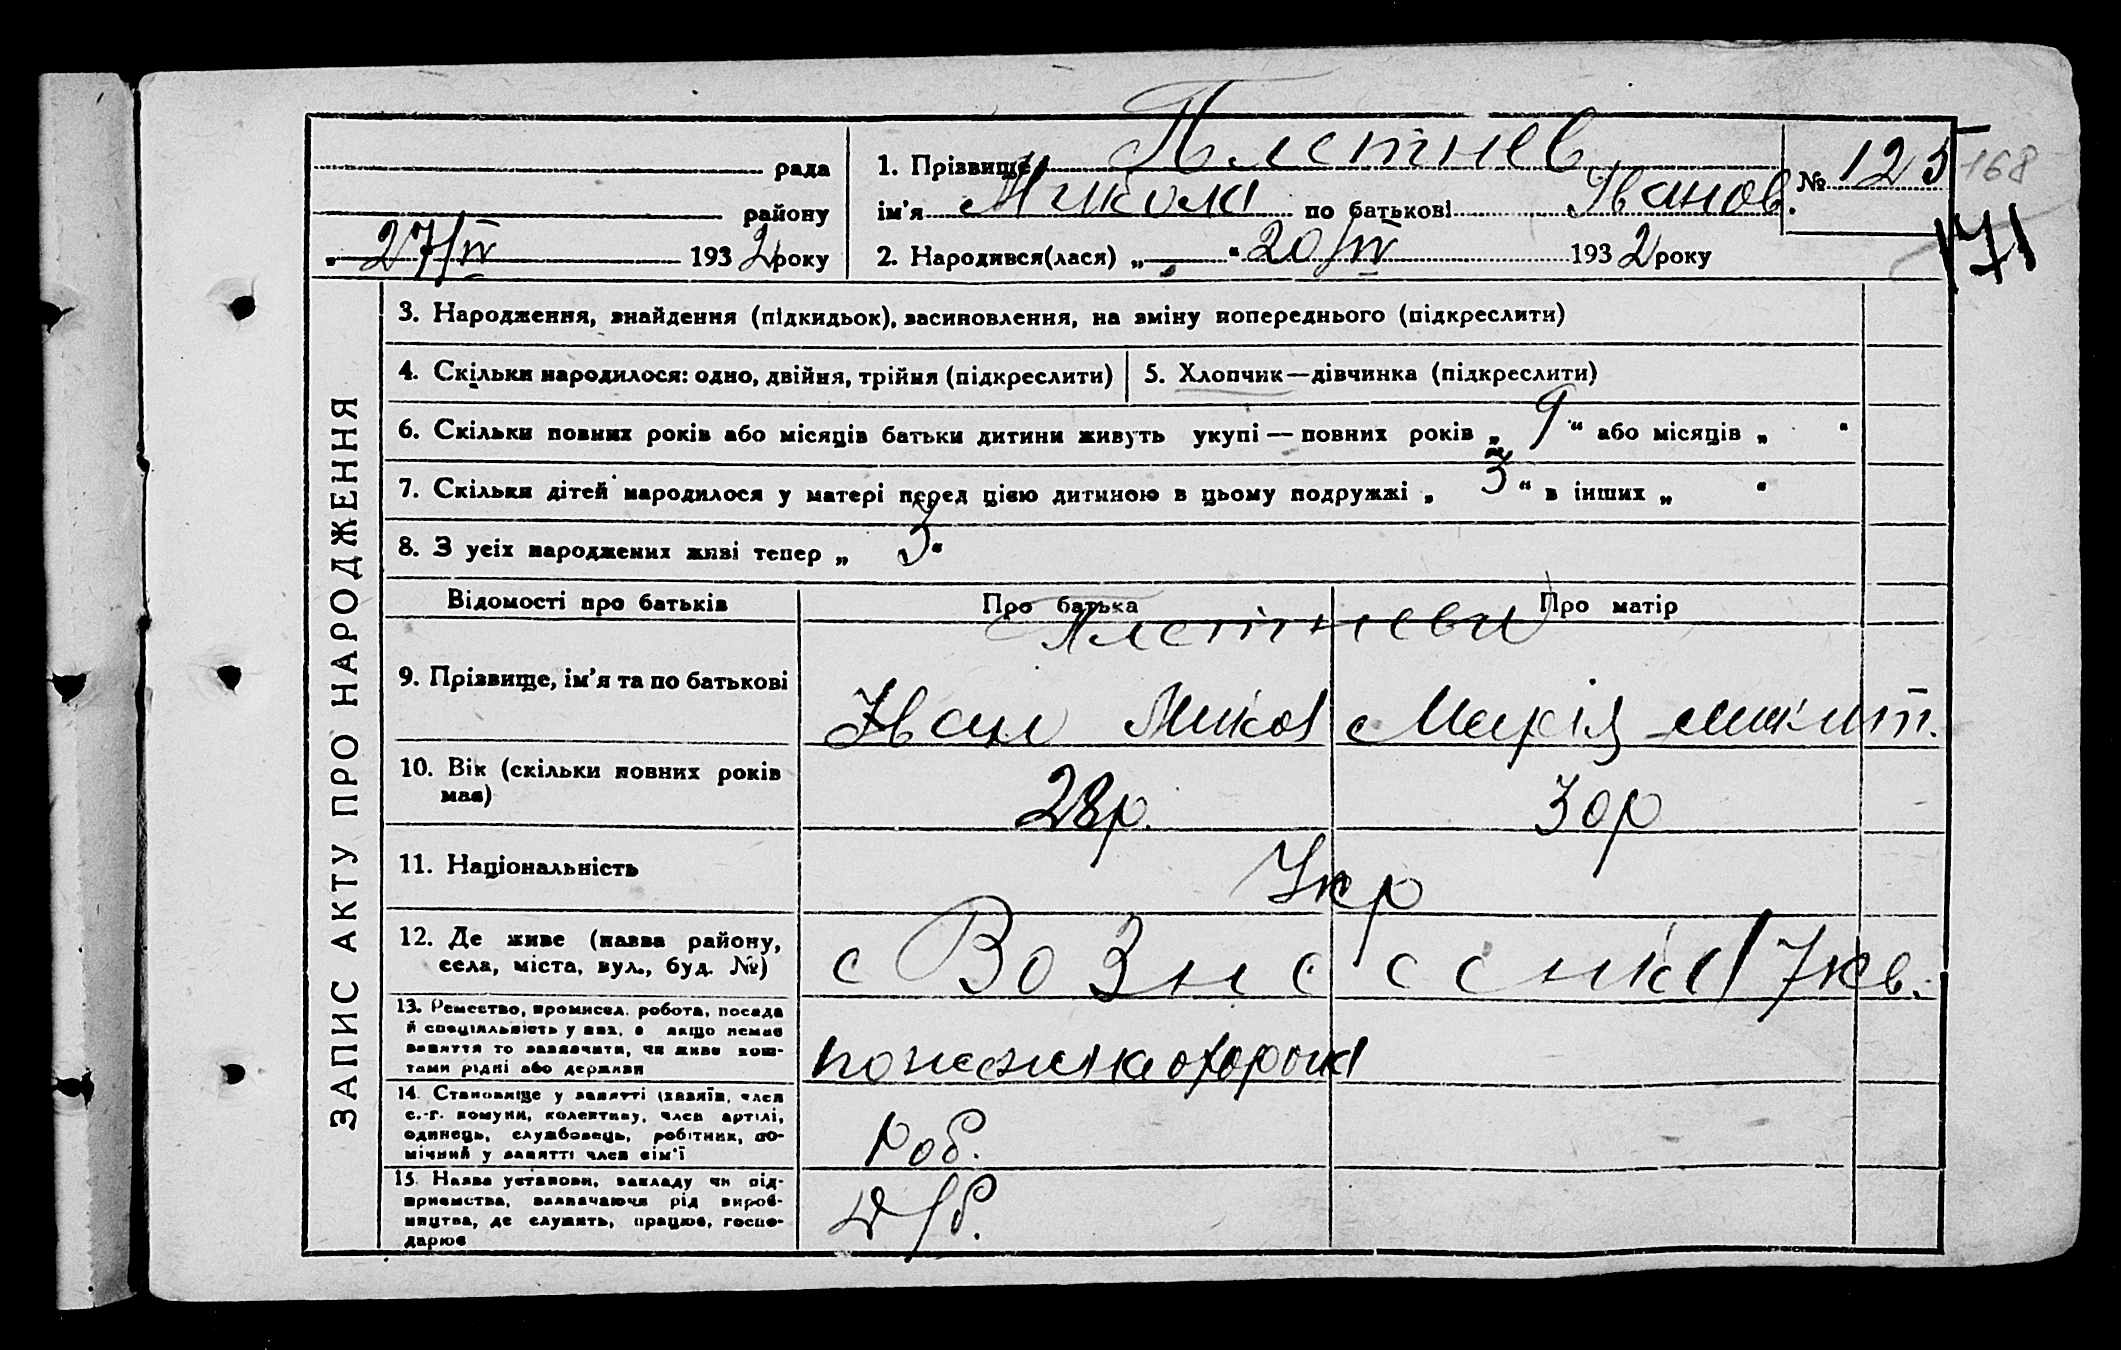 ЗАПИС АКТУ ПРО НАРОДЖЕННЯ
рада
району
„ 27/IV 1932 року
1. Прізвище Плетнев
ім'я Микола по батькові Іванов.
№ 125
168
171
2. Народився(лася) „ “ 20/IV 1932 року
3. Народження, знайдення (підкидьок), засиновлення, на зміну попереднього (підкреслити)
4. Скільки народилося: одно, двійня, трійня (підкреслити)
5. Хлопчик—дівчинка (підкреслити)
6. Скільки повних років або місяців батьки дитини живуть укупі — повних років „ 9 “ або місяців „ “
7. Скільки дітей народилося у матері перед цією дитиною в цьому подружжі „ 3 “ в інших „ “
8. З усіх народжених живі тепер „ 3 “
Відомості про батьків Про батька Про матір
Плетневи
9. Прізвище, ім'я та по батькові Іван Микол Марія Микит.
10. Вік (скільки повних років
має) 28р. 30р
11. Національність Укр
12. Де живе (назва району,
села, міста, вул., буд. №) с Вознесенка 7кв.
13. Ремество, промисел, робота, посада
й спеціяльність у них, а якщо немає
заняття то зазначити, чи живе кош-
тами рідні або держави
пожежна охорона
14. Становище у занятті (хазяїн, член
с.-г. комуни, колективу, член артілі,
одинець, службовець, робітник, по-
мічний у занятті член сім'ї
Роб.
15. Назва установи, закладу чи під-
приємства, зазначаючи рід вироб-
ництва, де служить, працює, госпо-
дарює